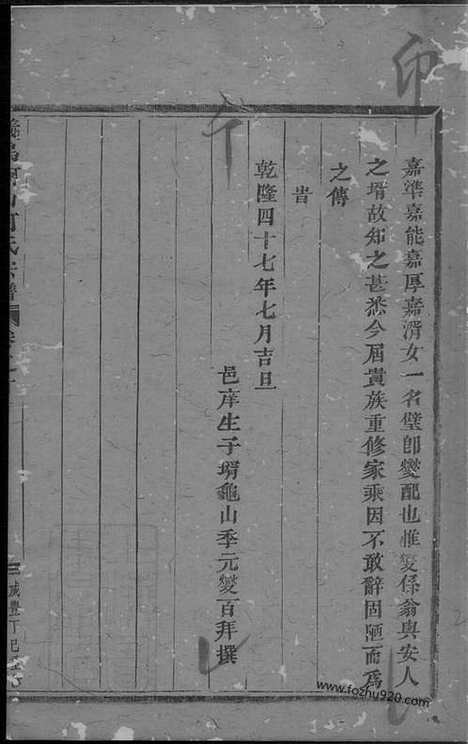 印
嘉準嘉能嘉厚嘉湑女一名璧卽燮配也惟燮係翁與安人
之壻故知之甚悉今屆貴族重修家乘因不敢辭固陋而爲
之傳
旹
乾隆四十七年七月吉旦
邑庠生子壻龜山季元燮百拜撰
氏宗譜
咸豐丁巳
www.fozhu920.com